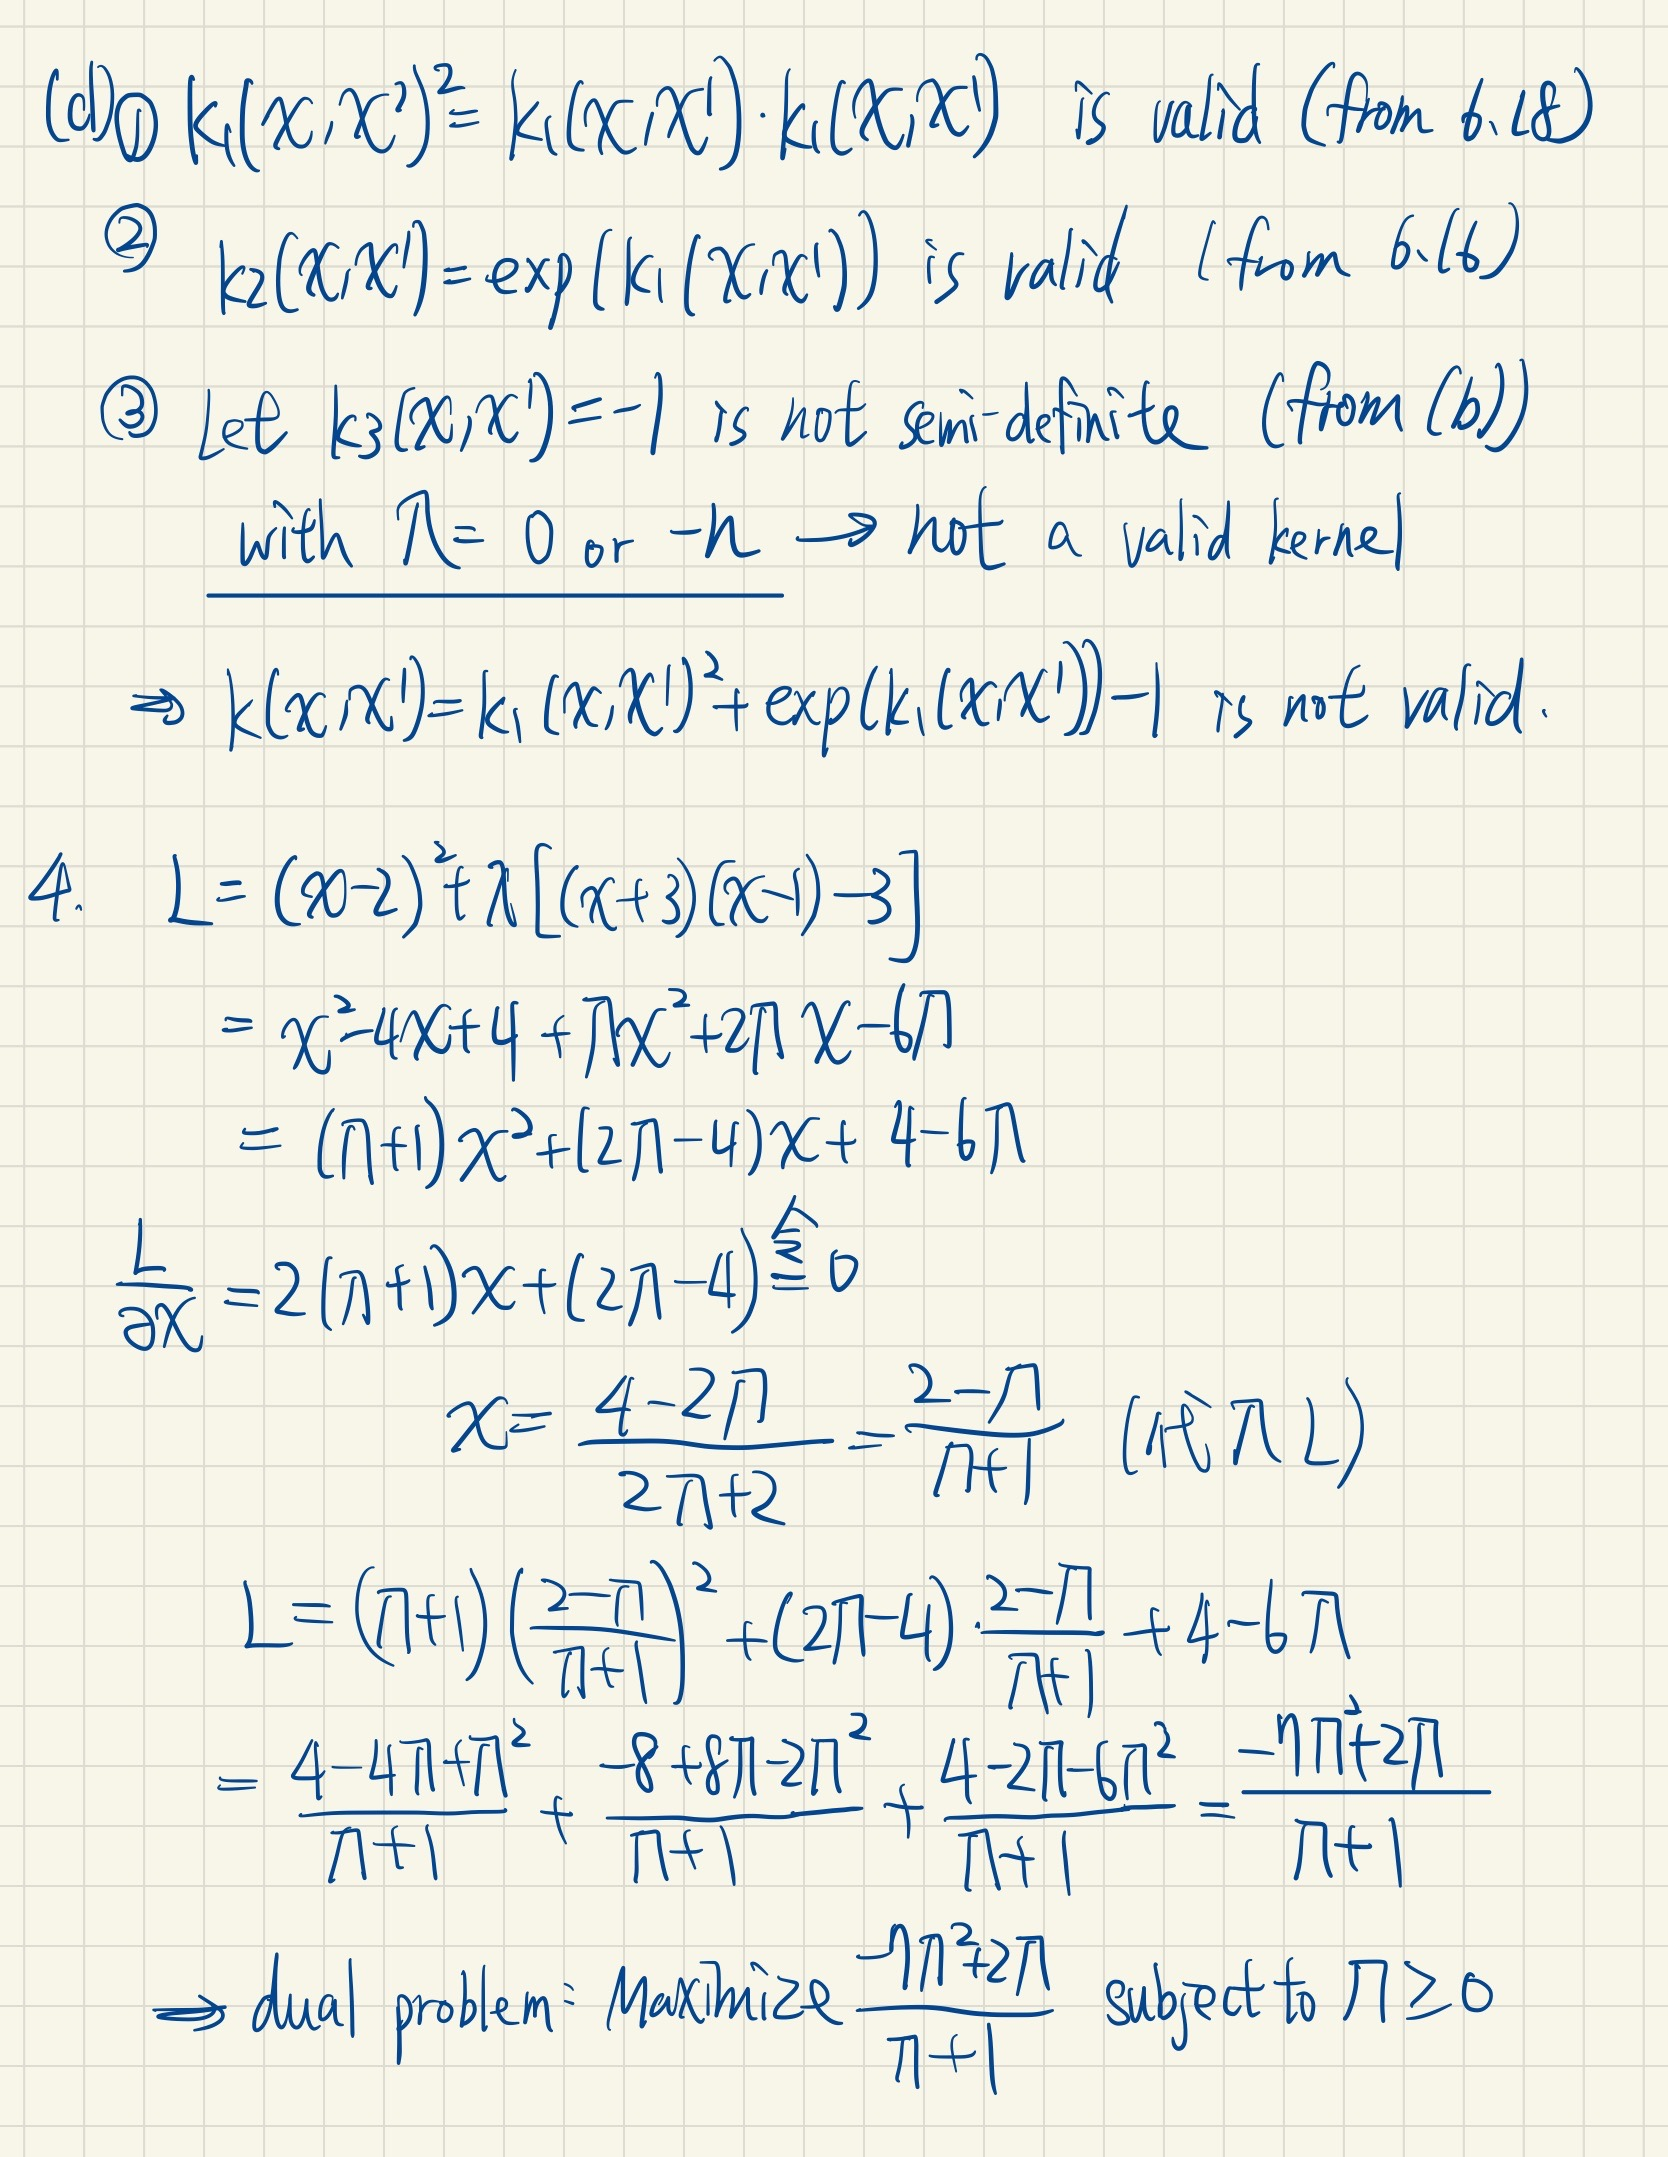 (d) ① k₁(x,x')² = k₁(x,x')·k₁(x,x') is valid (from 6.18)
② k₂(x,x') = exp(k₁(x,x')) is valid (from 6.16)
③ Let k₃(x,x') = -1 is not semi-definite (from (b))
with λ = 0 or -n → not a valid kernel
⇒ k(x,x') = k₁(x,x')² + exp(k₁(x,x')) - 1 is not valid.
4. L = (x-2)² + λ[(x+3)(x-1)-3]
= x²-4x+4+λx²+2λx-6λ
= (λ+1)x²+(2λ-4)x+4-6λ
L/∂x = 2(λ+1)x+(2λ-4) 令= 0
x = (4-2λ)/(2λ+2) = (2-λ)/(λ+1) (代入L)
L = (λ+1)((2-λ)/(λ+1))² + (2λ-4)·(2-λ)/(λ+1) + 4-6λ
= (4-4λ+λ²)/(λ+1) + (-8+8λ-2λ²)/(λ+1) + (4-2λ-6λ²)/(λ+1) = (-7λ²+2λ)/(λ+1)
⇒ dual problem: Maximize (-7λ²+2λ)/(λ+1) subject to λ ≥ 0